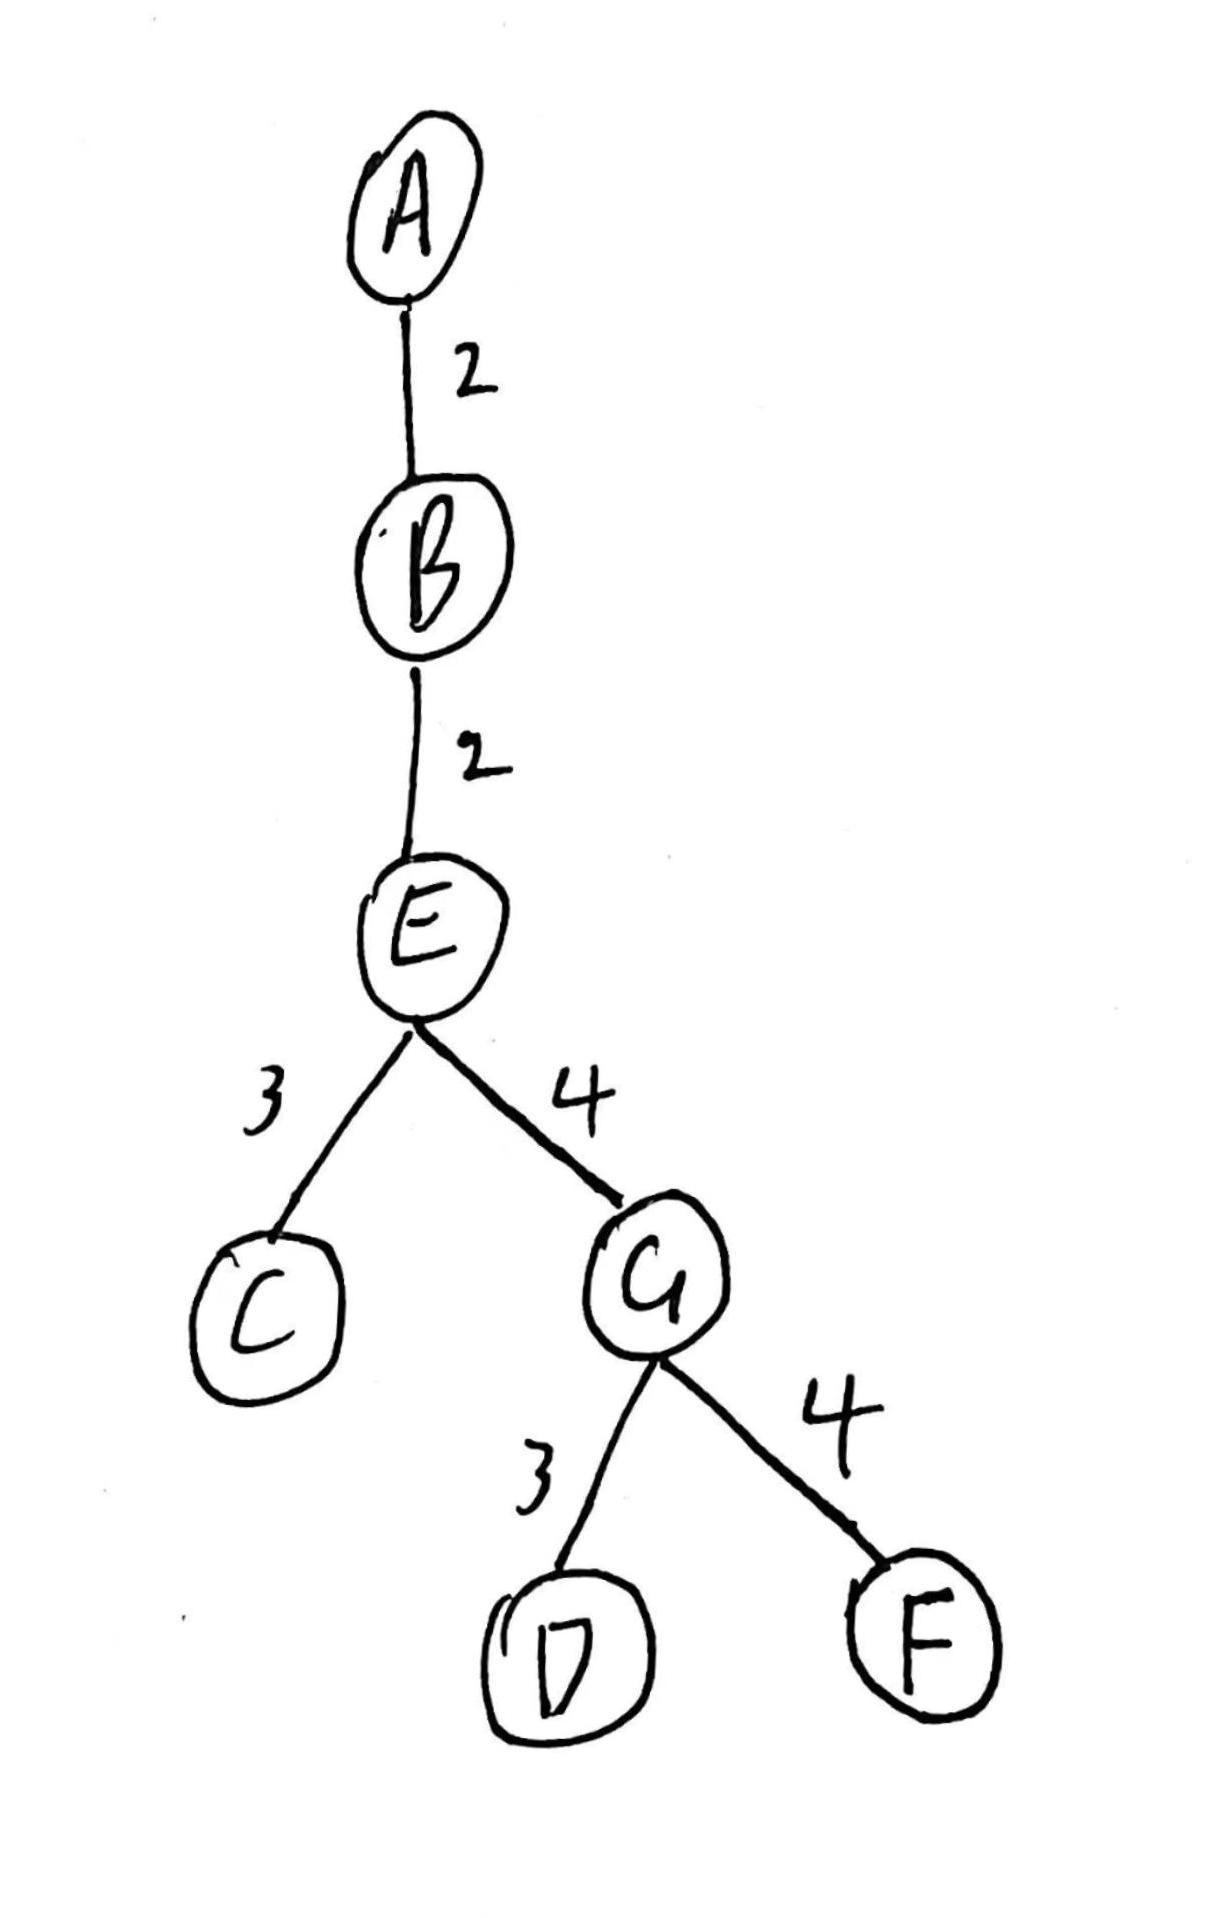 A
2
B
2
E
3 4
C G
3 4
D F